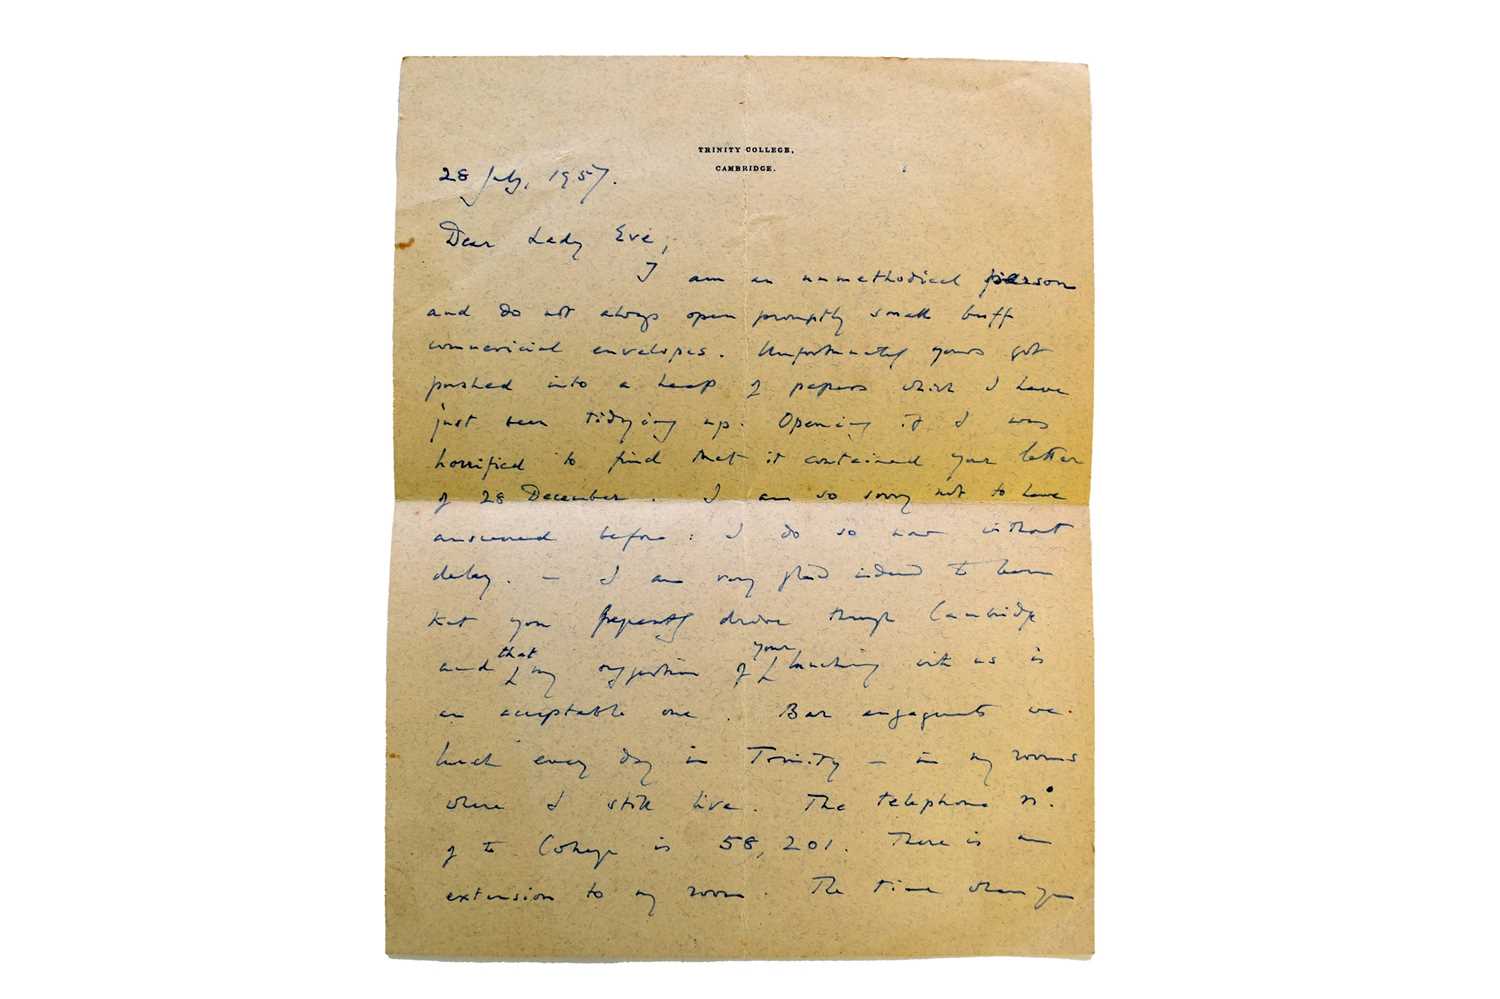 TRINITY COLLEGE,
CAMBRIDGE.
28 July, 1957.
Dear Lady Eve,
I am an unmethodical person
and do not always open promptly small buff
commercial envelopes. Unfortunately yours got
pushed into a heap of papers which I have
just been tidying up. Opening it I was
horrified to find that it contained your letter
of 28 December. I am so sorry not to have
answered before: I do so now without
delay. — I am very glad indeed to learn
that you frequently drive through Cambridge
and that my suggestion of your lunching with us is
an acceptable one. Bar engagements we
lunch every day in Trinity — in my rooms
where I still live. The telephone No.
of the College is 58,201. There is an
extension to my room. The time when you